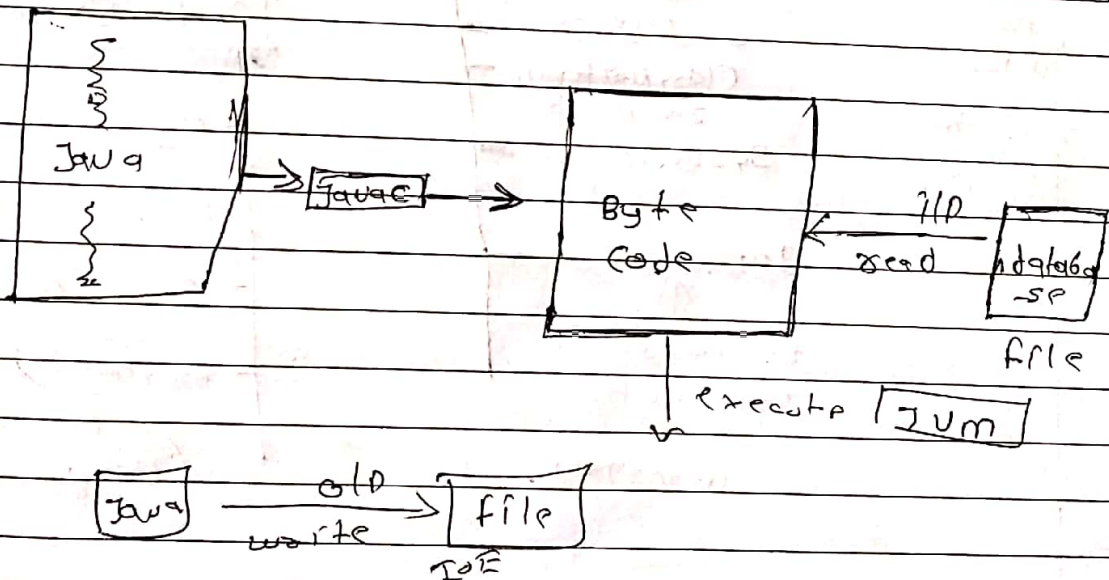 Java
Javac
Byte
Code
i/p
read
databa
-se
file
execute
JVM
Java
o/p
write
file
IOE